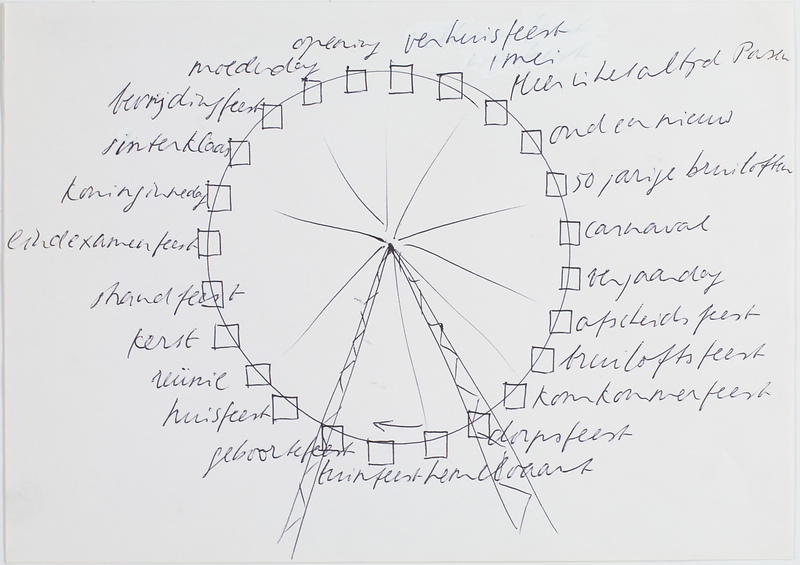 opening
verhuisfeest
1 mei
Hier is het altijd Pasen
oud en nieuw
50 jarige bruiloften
carnaval
verjaardag
afscheidsfeest
bruiloftsfeest
komkommerfeest
dorpsfeest
hemelvaart
tuinfeest
geboortefeest
huisfeest
reünie
kerst
strandfeest
eindexamenfeest
koninginnedag
sinterklaas
bevrijdingsfeest
moederdag